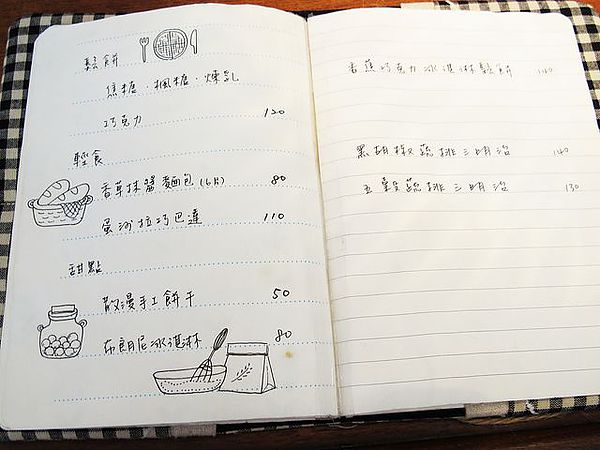 鬆餅
焦糖．楓糖．煉乳
巧克力 120
輕食
香草抹醬麵包(6片) 80
蛋沙拉巧巴達 110
甜點
散漫手工餅干 50
布朗尼冰淇淋 80
香蕉巧克力冰淇淋鬆餅 140
黑胡椒蔬排三明治 140
五穀蔬排三明治 130